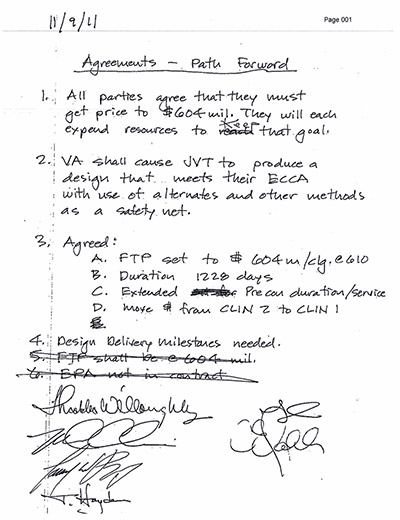 11/9/11
Page 001
Agreements - Path Forward
1. All parties agree that they must
get price to $604 mil. They will each
expend resources to that goal.
2. VA shall cause JVT to produce a
design that meets their ECCA
with use of alternates and other methods
as a safety net.
3. Agreed:
A. FTP set to $ 604m/clg. @ 610
B. Duration 1228 days
C. Extended Precon duration/service
D. move $ from CLIN 2 to CLIN 1
E.
4. Design Delivery milestones needed.
5. FTP shall be @ 604 mil.
6. EPA not in contract
T. Hayden